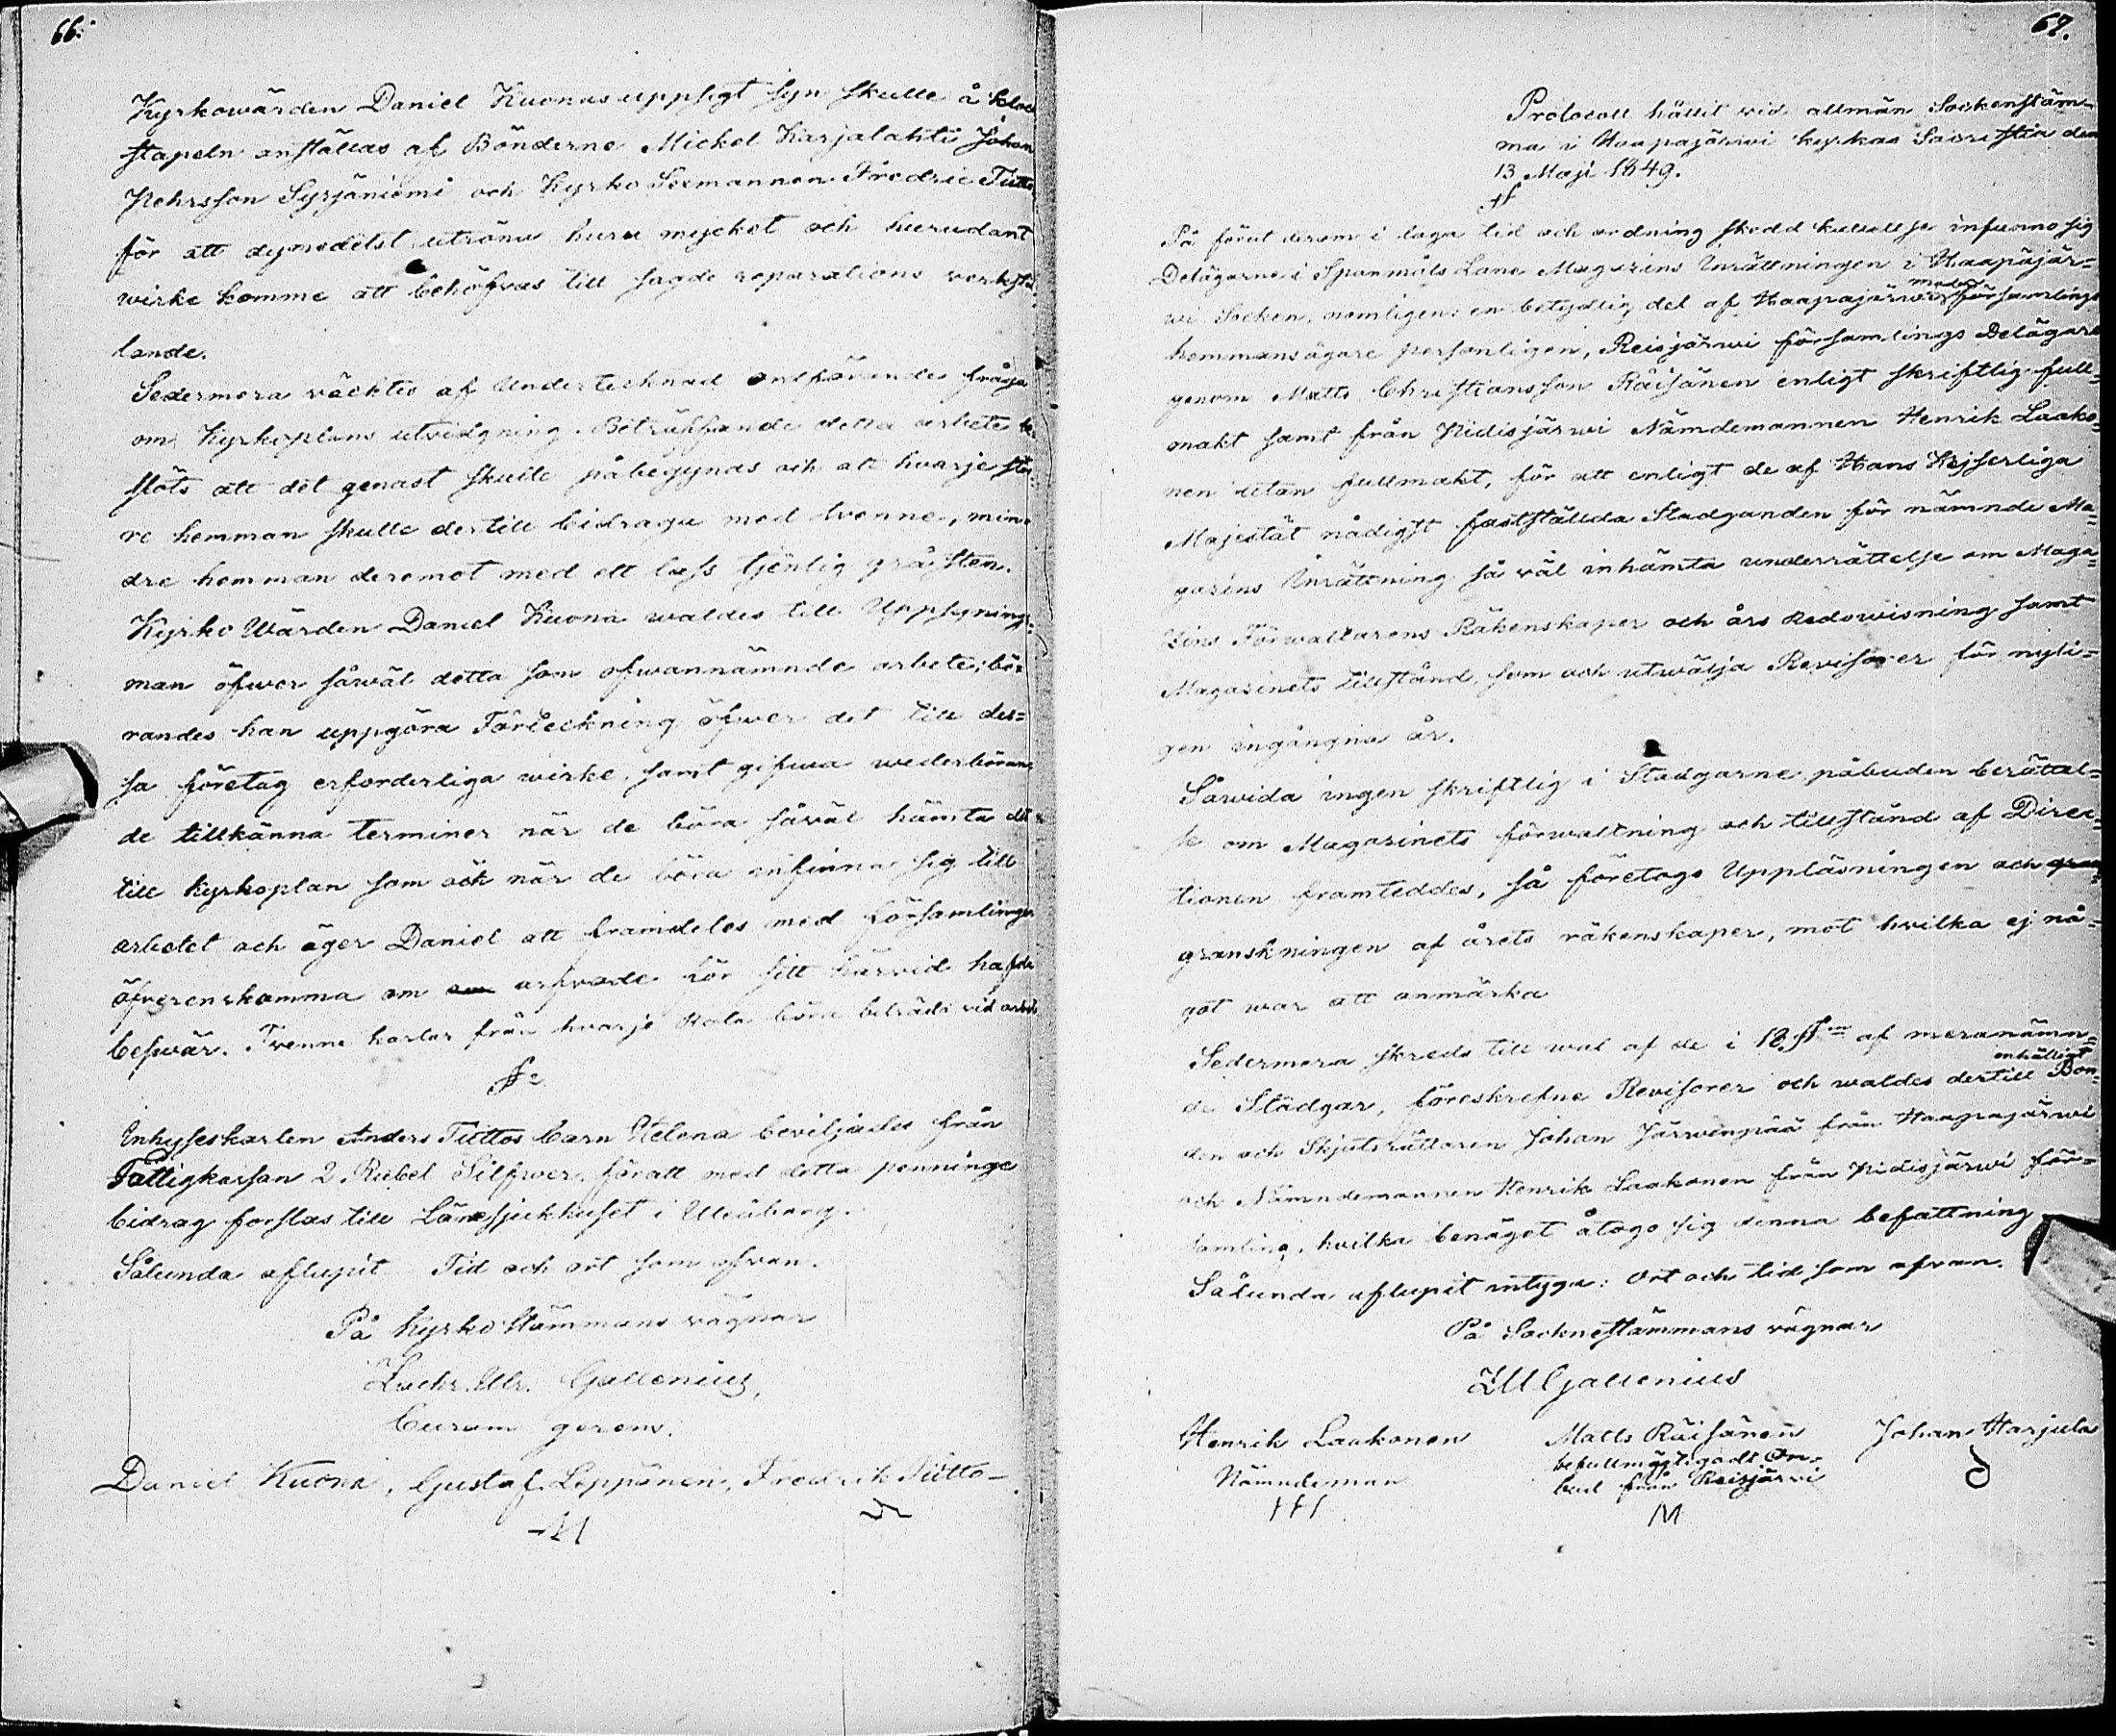 66.
Kyrkowärden Daniel Kuonas uppsigt syn skulle å klock
stapeln anställas af Bönderne Mickel Karjalahti Johan
Pehrsson Syrjäniemi och Kyrko Sexmannen Fredric Tiitto
för att dymedelst utröna huru mycket och hurudant
wirke komme att behöfvas till sagde reparations verkstäl
lande.
Sedermera väcktes af Undertecknad Ordförande fråga
om Kyrkoplans utvidgning. Beträffande detta arbete be
slöts att det genast skulle påbegynas och att hvarje stör
re hemman skulle dertill bidraga med tvenne, min-
dre hemman deremot med ett lass tjenlig gråsten.
Kyrko Wärden Daniel Kuona waldes till Uppsynings-
man öfwer såwäl detta som ofwannämnde arbete; bö-
randes han uppgöra Förteckning öfwer det till des-
sa företag erforderliga wirke, samt gifwa wederböran
de tillkänna terminer när de böra såväl hämta det
till Kyrkoplan som ock när de böra infinna sig till
arbetet och äger Daniel att framdeles med församlingen
öfverenskomma om arfvode för sitt härvid hafde
besvär. Tvenne karlar från hvarje Rote böra biträda vid arbete
§ 2
Inhyseskarlen Anders Tiittos barn Helena beviljades från
Fattigkassan 2 Rubel Silfwer, för att med detta penninge
bidrag forslas till Länesjukhuset i Uleåborg.
Sålunda aflupit Tid och ort som ofvan.
På Kyrko Stämmans vägnar
Zachr. Ulr. Gallenius,
Curam gerens.
Daniel Kuona, Gustaf Leppänen, Fredrik Tiitto
67.
Protocoll hållit vid allmän Sockenstäm-
ma i Haapajärwi kyrkas Sacristia den
13 Maji 1849.
§
På förut derom i laga tid och ordning skedd kallelse infunno sig
Delägarne i Spanmåls Lane Magasins Inrättningen i Haapajär-
wi Socken, nämligen: en betydlig del af Haapajärwi moder församlings
hemmansägare personligen, Reisjärwi församlings Delägare
genom Matts Christiansson Räisänen enligt skriftlig full-
makt samt från Pidisjärwi Nämdemannen Henrik Laako-
nen utan fullmakt, för att enligt de af Hans Kejserliga
Majestät nådigst fastställda Stadganden för nämnde Ma-
gasins Inrättning så väl inhämta underrättelse om Maga-
zins Förwaltarens Räkenskaper och års Redowisning samt
Magasinets tillstånd, som och utwälja Revisorer för nyli-
gen ingångna år.
Såvida ingen skriftlig i Stadgarne påbuden berättel-
se om Magasinets förwaltning och tillstånd af Direc-
tionen framteddes, så företogs Uppläsningen och
granskningen af årets räkenskaper, mot hvilka ej nå-
got war att anmärka
Sedermera skreds till wal af de i 18 § af meranämn-
de Stadgar, föreskrefne Revisorer och waldes dertill enhälligt Bon-
den och Skjutsrättaren Johan Järvenpää från Haapajärwi
och Nämndemannen Henrik Laakonen från Pidisjärwi för-
samling, hvilka benäget åtogo sig denna befattning
Sålunda aflupit intyga: Ort och tid som ofvan.
På Socknestämmans vägnar
ZUGallenius
Henrik Laakonen Matts Räisänen Johan Harjula
Nämndeman befullmägtigadt Om-
bud från Reisjärvi